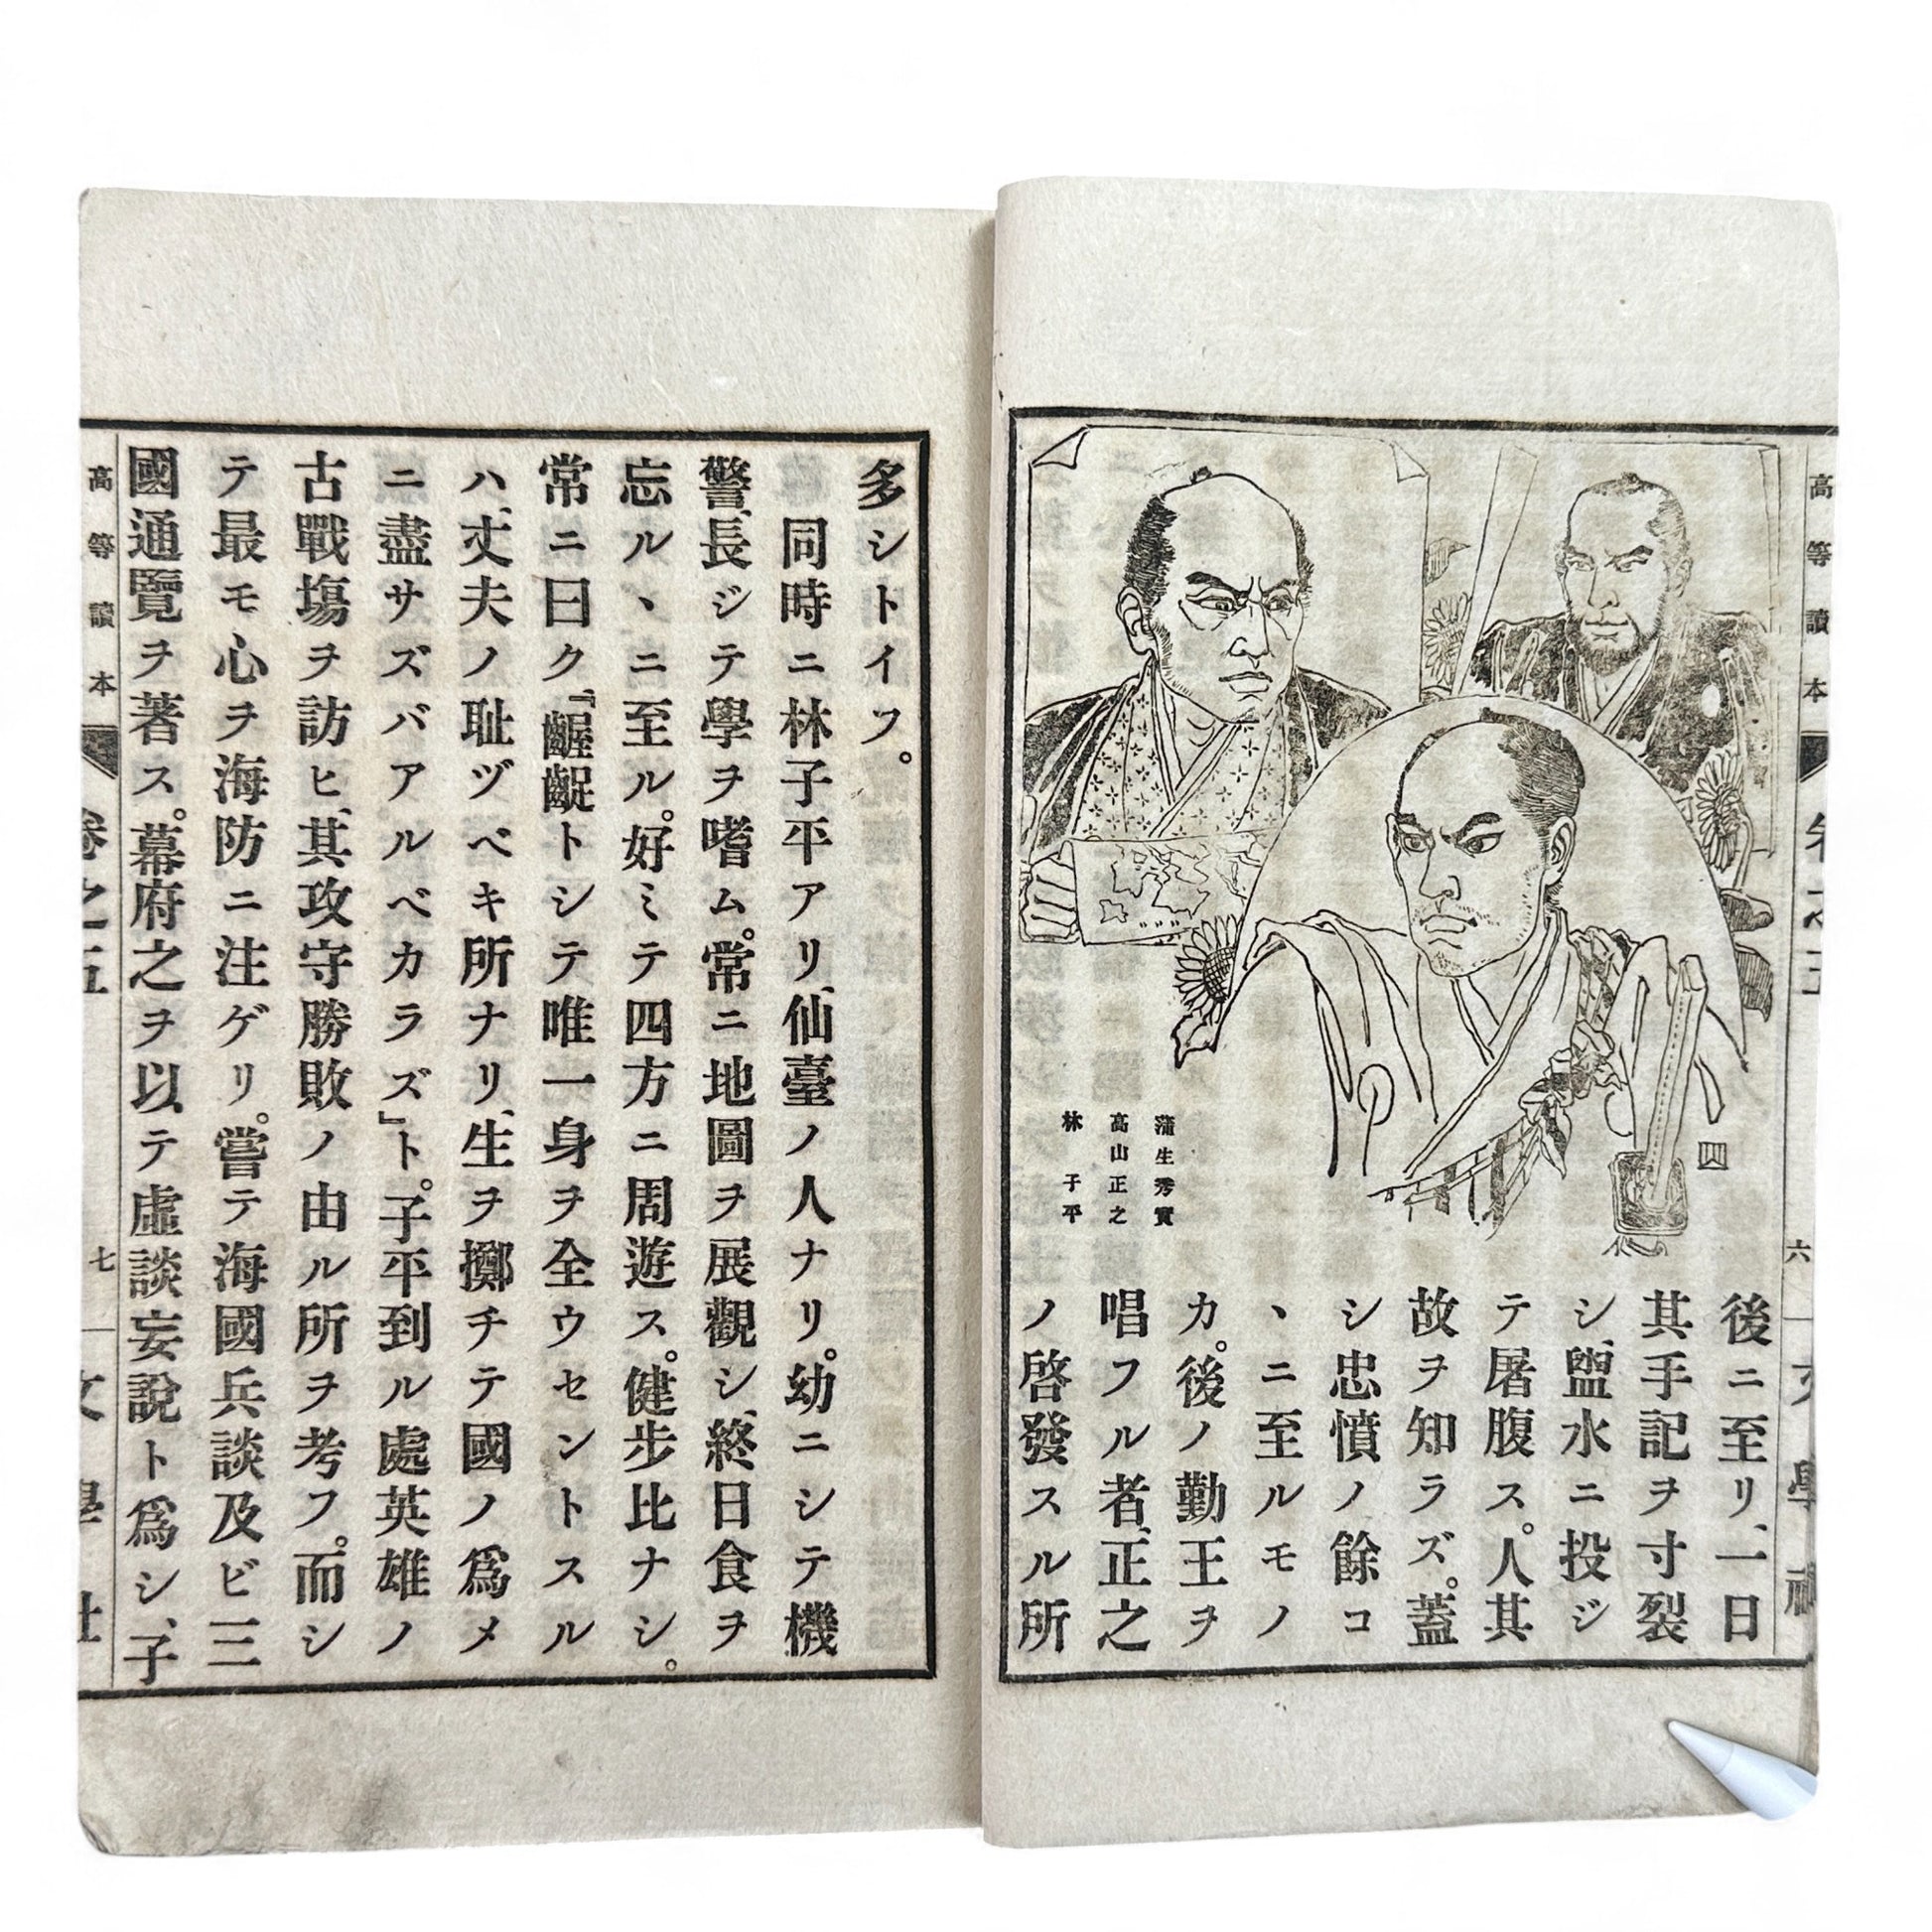 高等讀本
卷之五
六
文學社
四
蒲生秀實
高山正之
林子平
後ニ至リ、一日
其手記ヲ寸裂
シ、盥水ニ投ジ
テ屠腹ス。人其
故ヲ知ラズ。蓋
シ忠憤ノ餘コ
ヽニ至ルモノ
カ。後ノ勤王ヲ
唱フル者、正之
ノ啓發スル所
多シトイフ。
同時ニ林子平アリ、仙臺ノ人ナリ。幼ニシテ機
警、長ジテ學ヲ嗜ム。常ニ地圖ヲ展觀シ、終日食ヲ
忘ルヽニ至ル。好ミテ四方ニ周遊ス。健歩比ナシ。
常ニ曰ク『齷齪トシテ唯一身ヲ全ウセントスル
ハ、丈夫ノ耻ヅベキ所ナリ、生ヲ擲チテ國ノ爲メ
ニ盡サズバアルベカラズ』ト。子平到ル處英雄ノ
古戰塲ヲ訪ヒ、其攻守勝敗ノ由ル所ヲ考フ。而シ
テ最モ心ヲ海防ニ注ゲリ。嘗テ海國兵談及ビ三
國通覽ヲ著ス。幕府之ヲ以テ虛談妄說ト爲シ、子
高等讀本
卷之五
七
文學社